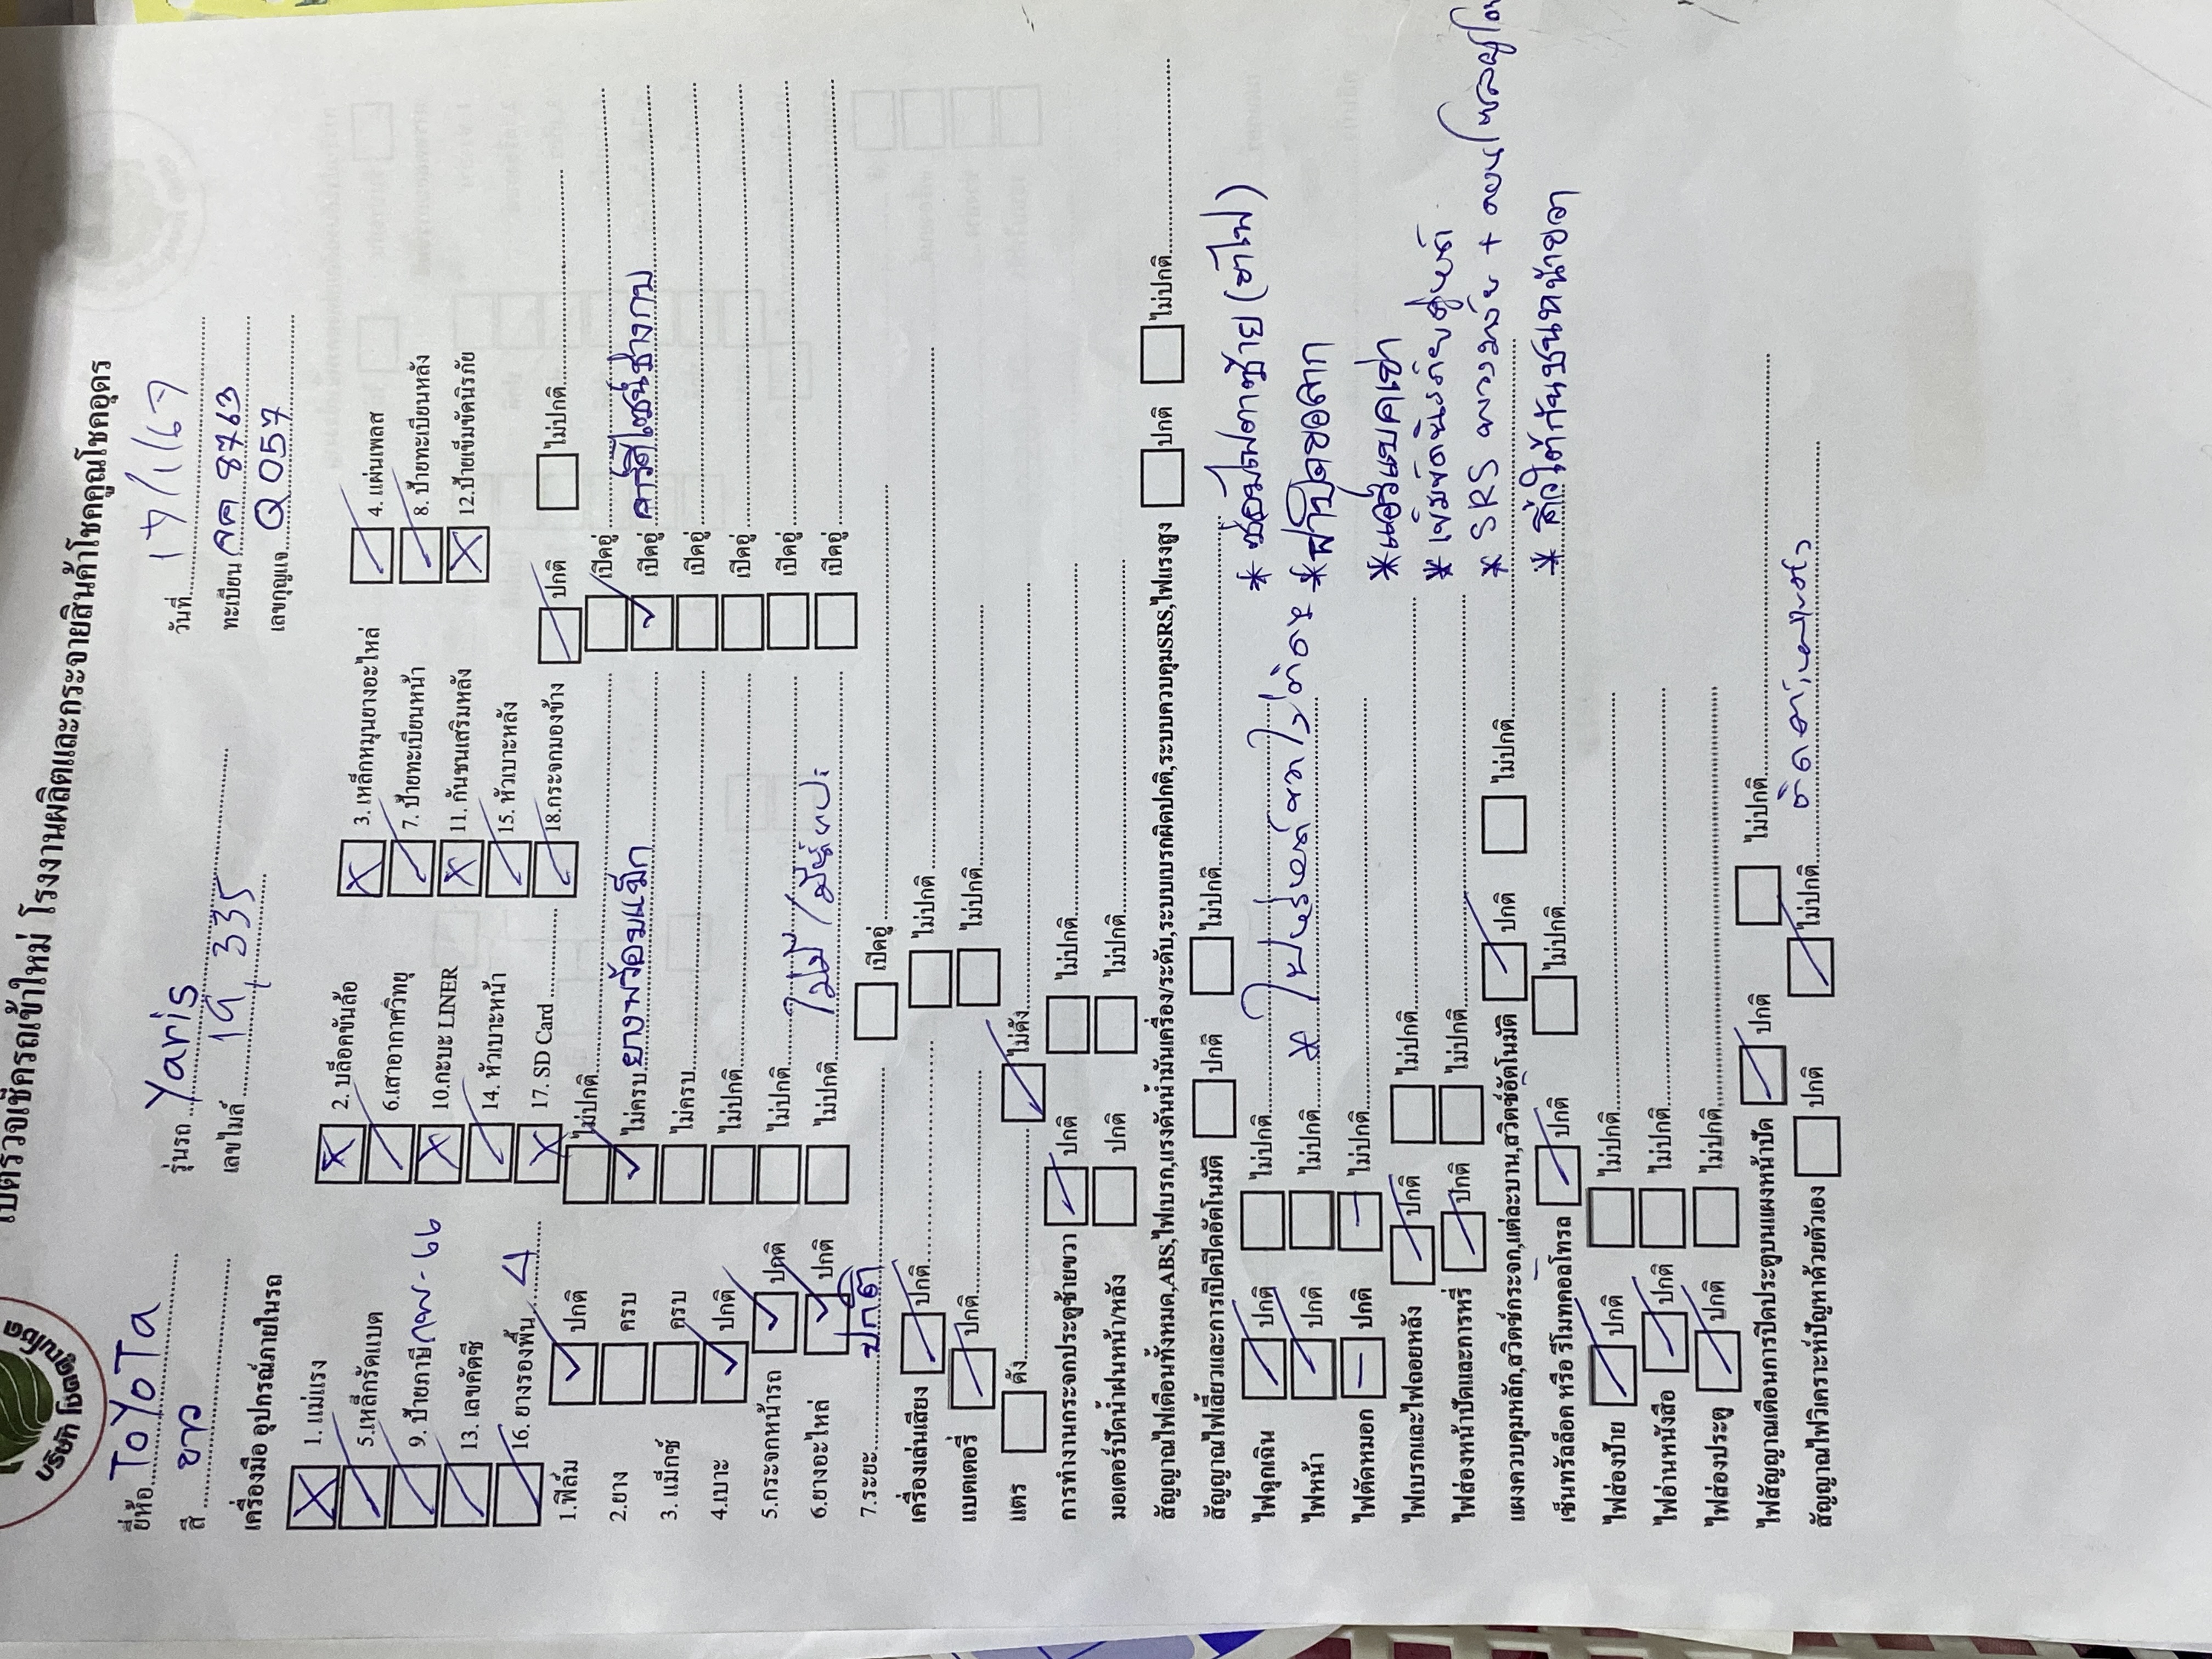 ใบตรวจเช็ครถเข้าใหม่ โรงงานผลิตและกระจายสินค้าโชคคูณโชคอุดร
บริษัท โชคคูณโชค
ยี่ห้อ TOYOTA รุ่นรถ Yaris วันที่ 17/1/67
สี ขาว เลขไมล์ 19,335 ทะเบียน 8763
เลขกุญแจ Q057
เครื่องมือ อุปกรณ์ภายในรถ
1. แม่แรง 2. บล็อคขันล้อ 3. เหล็กหมุนยางอะไหล่ 4. แผ่นเพลส
5.เหล็กรัคแบต 6.เสาอากาศวิทยุ 7. ป้ายทะเบียนหน้า 8. ป้ายทะเบียนหลัง
9. ป้ายภาษี 66 10.กะบะ LINER 11. กันชนเสริมหลัง 12.ป้ายเข็มขัดนิรภัย
13. เลขคัดซี 14. หัวเบาะหน้า 15. หัวเบาะหลัง
16. ยางรองพื้น 4 17. SD Card 18.กระจกมองข้าง ปกติ ไม่ปกติ
1.ฟิล์ม ปกติ ไม่ปกติ เปิดอู่
2.ยาง ครบ ไม่ครบ ยางพร้อมแม็ก เปิดอู่
3. แม็กซ์ ครบ ไม่ครบ เปิดอู่
4.เบาะ ปกติ ไม่ปกติ เปิดอู่
5.กระจกหน้ารถ ปกติ ไม่ปกติ เปิดอู่
6.ยางอะไหล่ ปกติ ไม่ปกติ ไม่มี เปิดอู่
7.ระยะ ปกติ เปิดอู่
เครื่องเล่นเสียง ปกติ ไม่ปกติ
แบตเตอรี่ ปกติ ไม่ปกติ
แตร ดัง ไม่ดัง
การทำงานกระจกประตูซ้ายขวา ปกติ ไม่ปกติ
มอเตอร์ปัดน้ำฝนหน้า/หลัง ปกติ ไม่ปกติ
สัญญาณไฟเตือนทั้งหมด,ABS,ไฟเบรก,แรงดันน้ำมันเครื่อง/ระดับ,ระบบเบรกผิดปกติ,ระบบควบคุมSRS,ไฟแรงสูง ปกติ ไม่ปกติ
สัญญาณไฟเลี้ยวและการเปิดปิดอัตโนมัติ ปกติ ไม่ปกติ
ไฟฉุกเฉิน ปกติ ไม่ปกติ * ซ่อมไฟตาซ้าย
ไฟหน้า ปกติ ไม่ปกติ * ฝาปิดขอลาก
ไฟตัดหมอก ปกติ ไม่ปกติ
ไฟเบรกและไฟถอยหลัง ปกติ ไม่ปกติ * แอร์แบคเข่า
ไฟส่องหน้าปัดและการหรี่ ปกติ ไม่ปกติ * เข็มขัดนิรภัยคู่หน้า
แผงควบคุมหลัก,สวิตช์กระจก,แต่ละบาน,สวิตช์อัตโนมัติ ปกติ ไม่ปกติ * SRS พวงมาลัย +
เซ็นทรัลล็อค หรือ รีโมทคอลโทรล ปกติ ไม่ปกติ * คิ้วใต้กันชนหน้าขวา
ไฟส่องป้าย ปกติ ไม่ปกติ
ไฟอ่านหนังสือ ปกติ ไม่ปกติ
ไฟส่องประตู ปกติ ไม่ปกติ
ไฟสัญญาณเตือนการปิดประตูบนแผงหน้าปัด ปกติ ไม่ปกติ
สัญญาณไฟวิเคราะห์ปัญหาด้วยตัวเอง ปกติ ไม่ปกติ